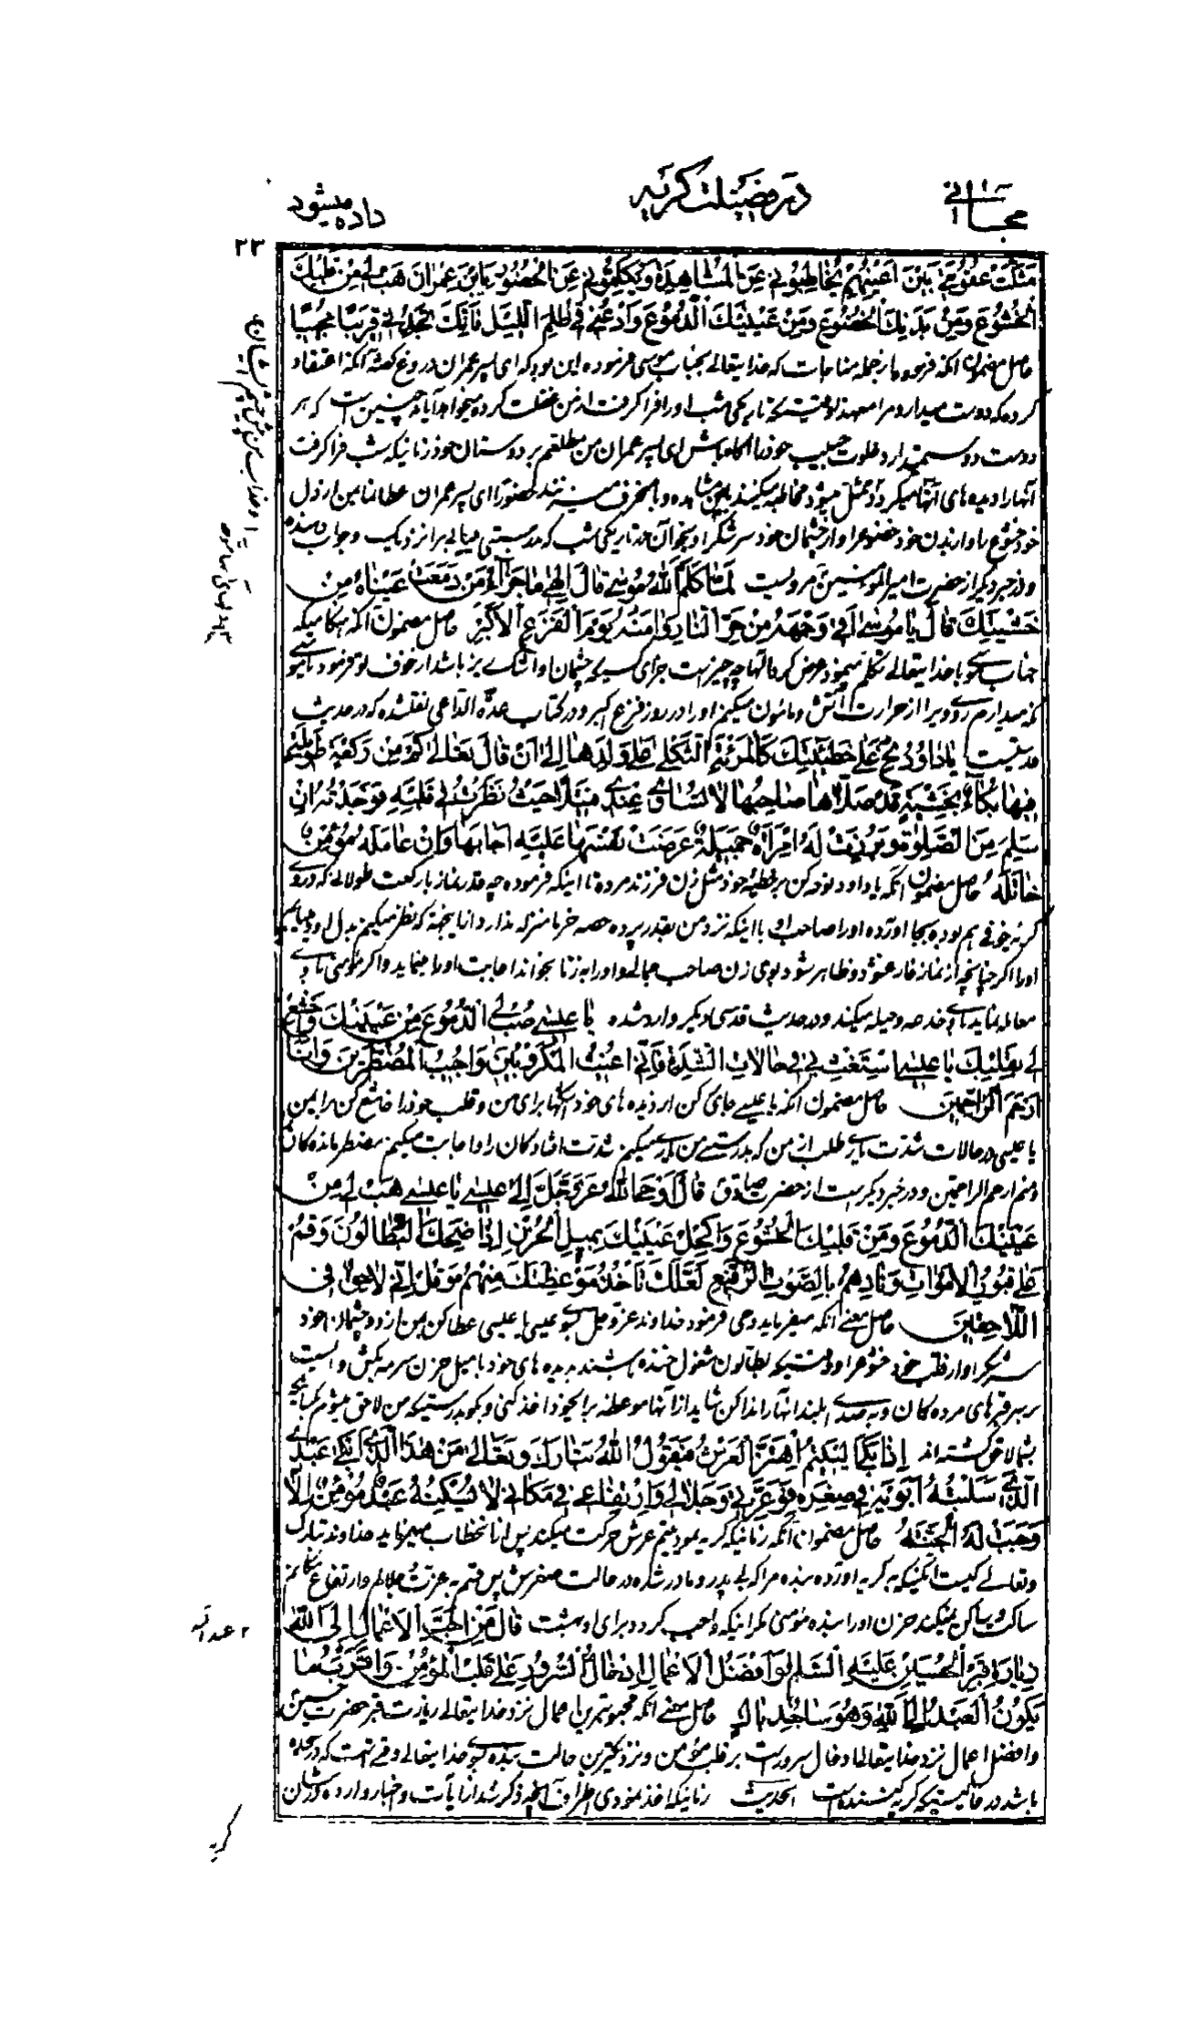 مجانی
در فضیلت گریه
داده میشود
۲۳
مَثَّلْتُ عُقُوبَتی بَیْنَ أَعْیُنِهِمْ یُخاطِبُونی عَنِ الْمُشاهَدَةِ وَ یُکَلِّمُونی عَنِ الْحُضُورِ یَابْنَ عِمْرانَ هَبْ لی مِنْ قَلْبِکَ
الْخُشُوعَ وَ مِنْ بَدَنِکَ الْخُضُوعَ وَ مِنْ عَیْنَیْکَ الدُّمُوعَ وَ ادْعُنی فی ظُلَمِ اللَّیْلِ فَاِنَّکَ تَجِدُنی قَریبًا مُجیبًا
حاصل مضمون آنکه فرمود از جمله مناجات که خدایتعالی بجناب موسی فرموده این بود که ای پسر عمران دروغ گفته آنکه اعتقاد
کرده که دوست میدارد مرا معهذا وقتیکه تاریکی شب او را فرا گرفت از من غفلت کرده میخوابد آیا نه چنین است که هر
دوست دوست میدارد خلوت حبیب خود را آگاه باش ای پسر عمران من مطلعم بر دوستان خود زمانیکه شب فرا گرفت
آنها را دیده های آنها میگردد و عقوبتم ممثل میشود مخاطبه میکنند بمن مشاهده و با من حرف میزنند بحضور ای پسر عمران عطا نما بمن از دل
خود خشوع را و از بدن خود خضوع را و از چشمان خود سرشک را و بخوان مرا در تاریکی شب که بدرستی میابی مرا نزدیک و جواب دهنده
و در خبر دیگر از حضرت امیر المؤمنین مرویست لَمّا کَلَّمَ اللّٰهُ مُوسی قالَ اِلٰهی ما جَزآءُ مَنْ دَمَعَتْ عَیْناهُ مِنْ
خَشْیَتِکَ قالَ یا مُوسی اَقی وَجْهَهُ مِنْ حَرِّ النّارِ وَ اٰمَنُهُ یَوْمَ الْفَزَعِ الْاَکْبَرِ حاصل مضمون آنکه هنگامیکه
جناب موسی با خدایتعالی تکلم مینمود عرض کرد الها چه چیز است جزای کسیکه چشمان او اشک ریز باشد از خوف تو فرمود یا موسی
نگه میدارم روی ویرا از حرارت آتش و مامون میکنم او را در روز فزع اکبر و در کتاب عدّة الداعی نقل شده که در حدیث
قدسیست یا داوُدُ نُحْ عَلی خَطیئَتِکَ کَالْمَرْئَةِ الثَّکْلی عَلی وَلَدِها اِلی اَنْ قالَ تَعالی کَمْ مِنْ رَکْعَةٍ طَویلَةٍ
فیها بُکآءٌ بِخَشْیَةٍ قَدْ صَلّاها صاحِبُها لا تُساوی عِنْدی فَتیلًا حَیْثُ نَظَرْتُ فی قَلْبِهِ فَوَجَدْتُهُ اِنْ
سَلِمَ مِنَ الصَّلوةِ وَ بَرَزَتْ لَهُ امْرَأَةٌ جَمیلَةٌ عَرَضَتْ نَفْسَها عَلَیْهِ اَجابَها وَ اِنْ عامَلَهُ مُؤْمِنٌ
خاتَلَهُ حاصل مضمون آنکه یا داود نوحه کن بر خطیئه خود مثل زن فرزند مرده تا اینکه فرموده چه قدر نماز با رکعت طولانی که در وی
گریه خوفی هم بوده بجا آورده او را صاحب او با اینکه نزد من بقدر پرده هسته خرما منزله ندارد از اینجهة که نظر میکنم بدل او و مییابم
او را اگر چنانچه از نماز فارغ شود و ظاهر شود بوی زن صاحب جمالی و او را به زنا بخواند اجابت او را مینماید و اگر مؤمنی با وی
معامله نماید با وی خدعه و حیله میکند و در حدیث قدسی دیگر وارد شده یا عیسی صُبَّ لِیَ الدُّمُوعَ مِنْ عَیْنَیْکَ وَ اخْشَعْ
لی بِقَلْبِکَ یا عیسی اِسْتَغِثْ بی فی حالاتِ الشِّدَّةِ فَاِنّی اُغیثُ الْمَکْرُوبینَ وَ اُجیبُ الْمُضْطَرّینَ وَ اَنَا
اَرْحَمُ الرّاحِمینَ حاصل مضمون آنکه یا عیسی جاری کن از دیده های خود اشکها برای من و قلب خود را خاشع کن برای من
یا عیسی در حالات شدت یاری طلب از من که بدرستی من یاری میکنم شدت افتادگان را و اجابت میکنم مضطر مانده کان را
و منم ارحم الراحمین و در خبر دیگر است از حضرت صادق قالَ اَوْحَی اللّٰهُ عَزَّ وَ جَلَّ اِلی عیسی یا عیسی هَبْ لی مِنْ
عَیْنَیْکَ الدُّمُوعَ وَ مِنْ قَلْبِکَ الْخُشُوعَ وَ اکْحُلْ عَیْنَیْکَ بِمیلِ الْحُزْنِ اِذا ضَحِکَ الْبَطّالُونَ وَ قُمْ
عَلی قُبُورِ الْاَمْواتِ وَ نادِهِمْ بِالصَّوْتِ الرَّفیعِ لَعَلَّکَ تَأْخُذُ مَوْعِظَتَکَ مِنْهُمْ وَ قُلْ اِنّی لاحِقٌ فی
اللّاحِقینَ حاصل معنی آنکه میفرماید وحی فرمود خداوند عز و جل بسوی عیسی یا عیسی عطا کن بمن از دو چشمان خود
سرشک را و از قلب خود خشوع را و وقتیکه بطالون مشغول خنده باشند بدیده های خود با میل حزن سرمه بکش و بایست
بر سر قبرهای مرده کان و به صدای بلند آنها را ندا کن شاید از آنها موعظه برای خود اخذ کنی و بگو بدرستیکه من لاحق میشوم بر آنانکه
بشما لاحق گشته اند اِذا بَکَی الْیَتیمُ اهْتَزَّ الْعَرْشُ فَیَقُولُ اللّٰهُ تَبارَکَ وَ تَعالی مَنْ هٰذَا الَّذی اَبْکی عَبْدِیَ
الَّذی سَلَبْتُهُ اَبَوَیْهِ فی صِغَرِهِ فَوَعِزَّتی وَ جَلالی وَ ارْتِفاعی فی مَکانی لا یُسْکِتُهُ عَبْدٌ مُؤْمِنٌ اِلّا
وَجَبَتْ لَهُ الْجَنَّةُ حاصل مضمون آنکه زمانیکه گریه نمود یتیم عرش حرکت میکند پس باینخطاب میفرماید خداوند تبارک
و تعالی کیست آنکسیکه به گریه آورده بنده مرا که بی پدر و مادر شده در حالت صغرش پس قسم به عزت و جلالم و ارتفاع مکانم
ساکت و ساکن نمیکند حزن او را بنده مؤمنی مگر اینکه واجب گردد برای او بهشت قالَ مِنْ اَحَبِّ الْاَعْمالِ اِلَی اللّٰهِ
زِیارَةُ قَبْرِ الْحُسَیْنِ عَلَیْهِ السَّلامُ وَ اَفْضَلُ الْاَعْمالِ اِدْخالُ السُّرُورِ عَلی قَلْبِ الْمُؤْمِنِ وَ اَقْرَبُ ما
یَکُونُ الْعَبْدُ اِلَی اللّٰهِ وَ هُوَ ساجِدٌ باکٍ حاصل معنی آنکه محبوبترین اعمال نزد خدایتعالی زیارت قبر حضرت حسین
و افضل اعمال نزد خدایتعالی ادخال سرور است بر قلب مؤمن و نزدیکترین حالت بنده بسوی خدایتعالی وقتی است که در سجده
باشد در حالتیستیکه گریه کننده است الحدیث زمانیکه اخذ نمودی اطراف آنچه ذکر شد از آیات و اخبار وارده در شان
گریه